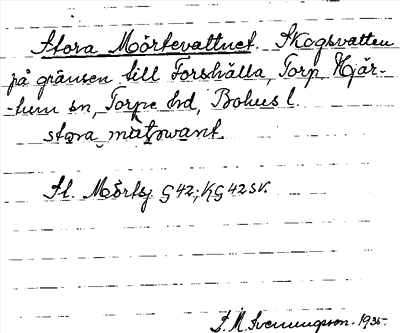 Stora Mörtevattnet. Skogsvatten
på gränsen till Forshälla, Torp, Hjär-
-tum sn, Torpe hd, Bohus l.
stora
St. Mörtsj G 42; KG 42 SV.
S. M. Svenungsson. 1935-